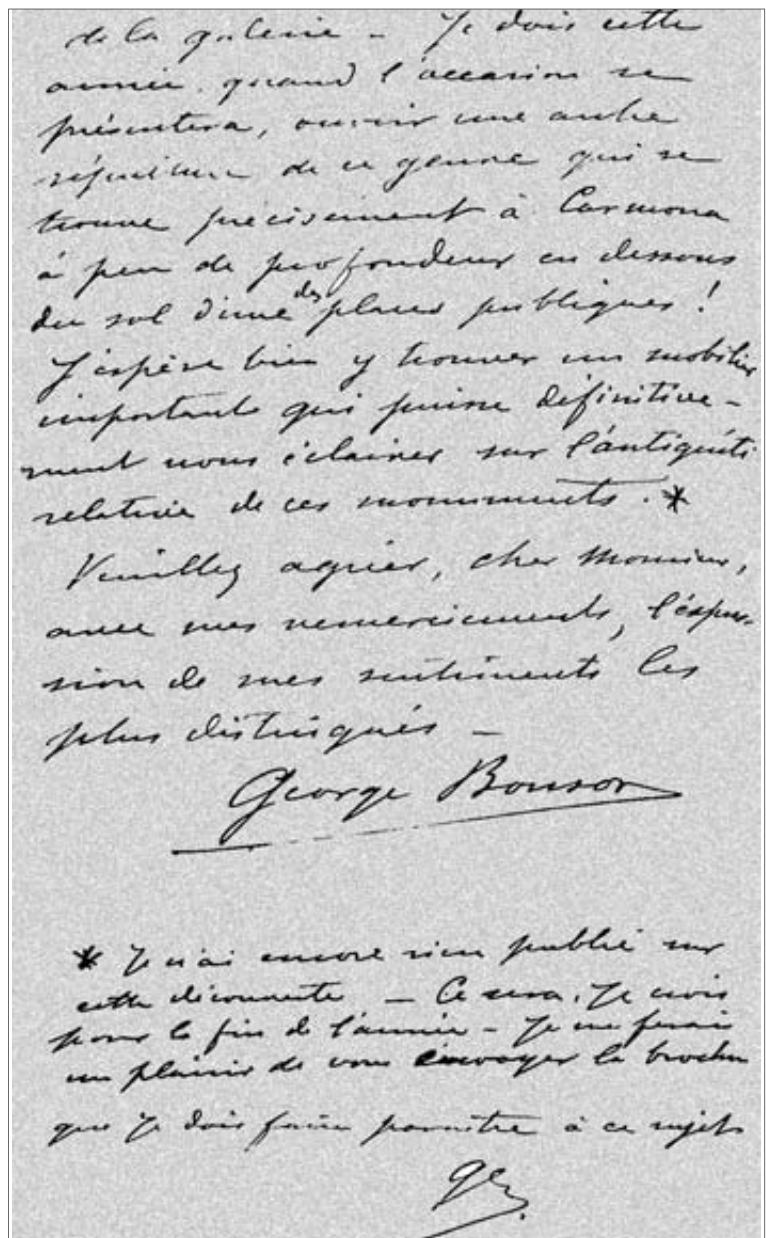 de la galerie - Je dois cette
année, quand l'occasion se
présentera, ouvrir une autre
sépulture de ce genre qui se
trouve précisement à Carmona
à peu de profondeur en dessous
du sol d'une des places publiques !
J'espère bien y trouver un mobilier
important qui puisse définitive-
ment nous éclairer sur l'antiquité
relative de ces monuments. *
Veuillez agréer, cher Monsieur,
avec mes remerciements, l'expres-
sion de mes sentiments les
plus distingués -
George Bonsor
* Je n'ai encore rien publié sur
cette découverte - Ce sera, Je crois
pour la fin de l'année - Je me ferais
un plaisir de vous envoyer la brochure
que je dois faire paraître à ce sujet